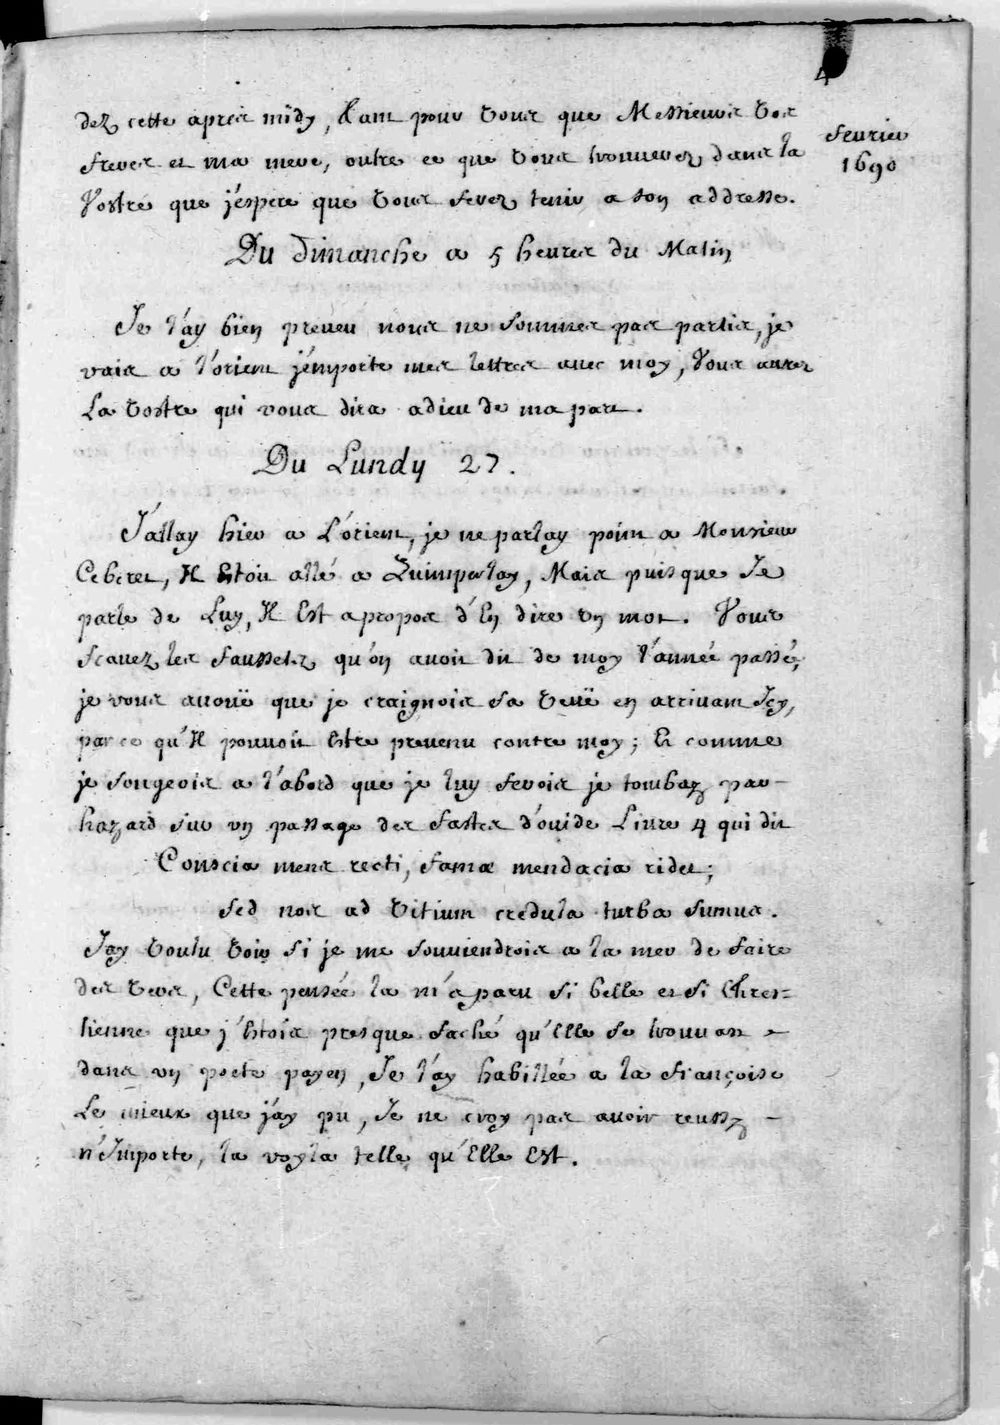 4
fevrier
1690
dez cette apres midy, tant pour vous que Messieurs vos
freres et ma mere, outre ce que vous trouverez dans la
vostre que j'espere que vous ferez tenir a son addresse.
Du dimanche a 5 heures du Matin
Je l'ay bien preveu nous ne sommes pas partis, je
vais a l'orient j'emporte mes lettres avec moy, Vous aurez
La vostre qui vous dira adieu de ma part.
Du Lundy 27.
J'allay hier a L'orient, je ne parlay point a Monsieur
Ceberet, Il Estoit allé a Quimperlay, Mais puis que Je
parle de Luy, Il Est apropos d'En dire un mot. Vous
scavez les faussetez qu'on avoit dit de moy l'année passé,
je vous avouë que je craignois sa veuë en arrivant Icy,
par ce qu'Il pouvoit Estre prevenu contre moy; Et comme
je songeois a l'abord que je luy ferois je tombaz par
hazard sur un passage des fastes d'ouide Livre 4 qui dit
Conscia mens recti, famæ mendacia ridet;
Sed nos ad vitium credula turba sumus.
J'ay voulu voir si je me souviendrois a la mer de faire
des vers, Cette pensée la m'a paru si belle et si Chres=
tienne que j'Estois presque faché qu'Elle se trouvast
dans un poete payen, Je l'ay habillée a la françoise
Le mieux que j'ay pu, Je ne croy pas avoir reussz
n'Importe, la voyla telle qu'Elle Est.